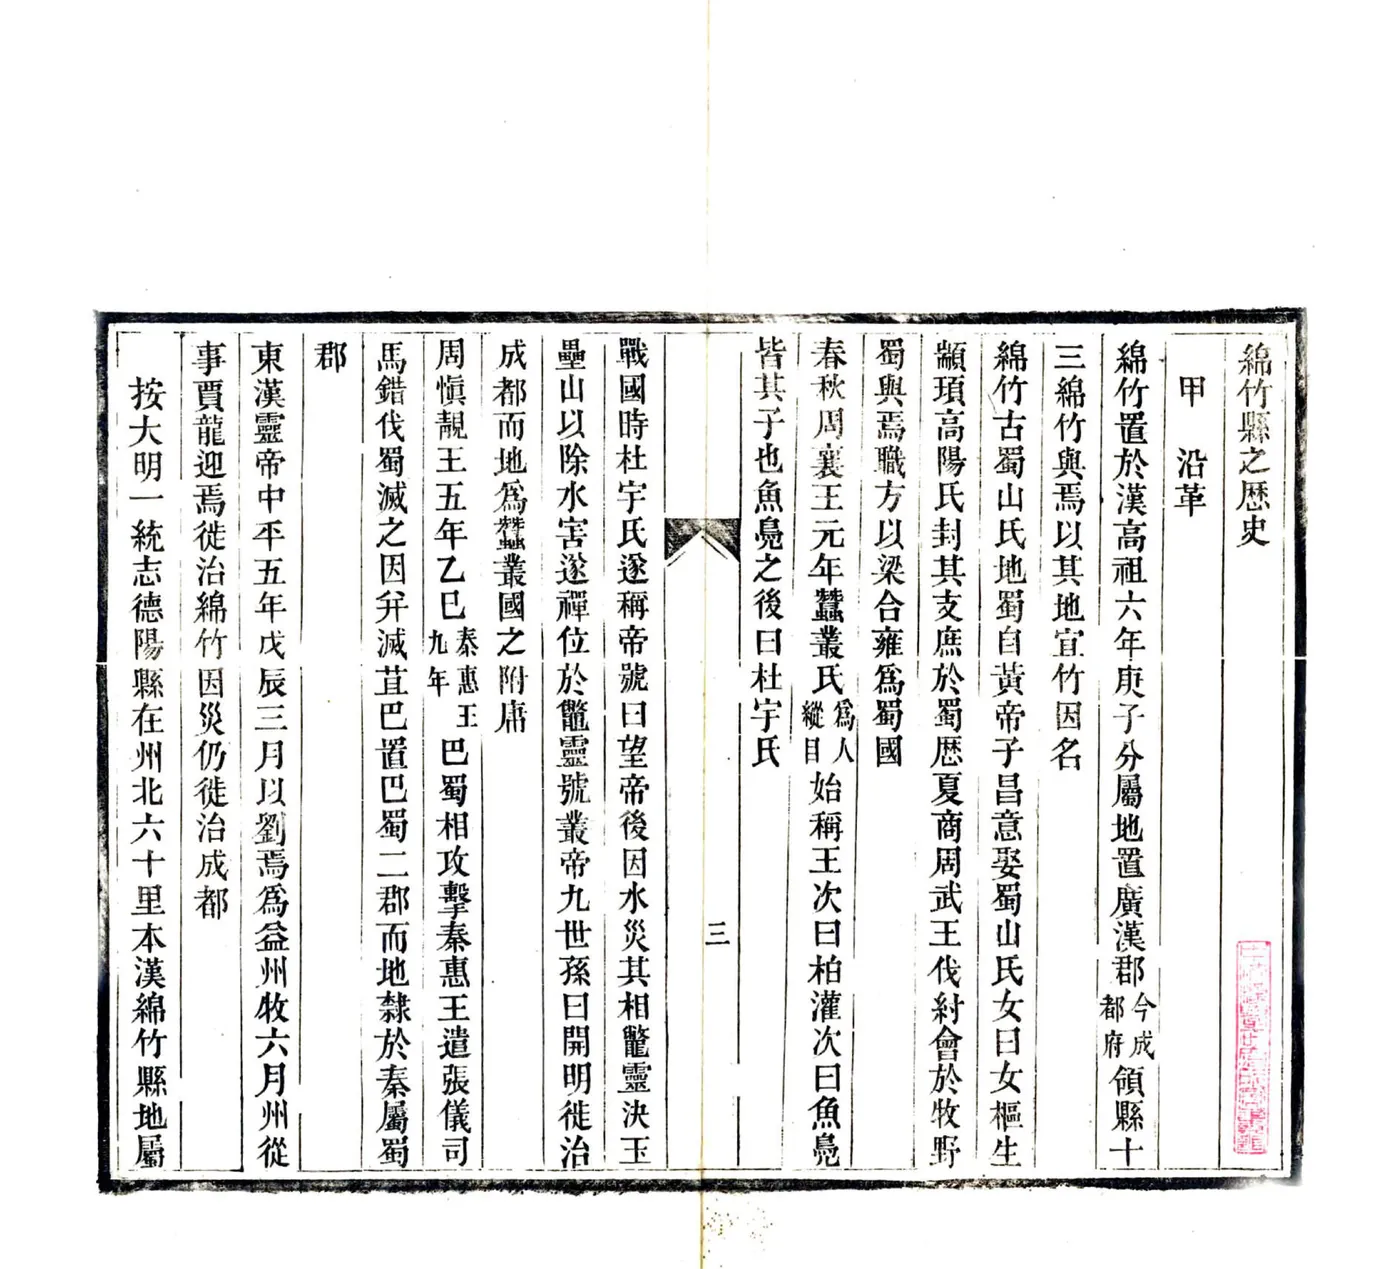 綿竹縣之歷史
甲 沿革
綿竹置於漢高祖六年庚子分屬地置廣漢郡今成都府領縣十
三綿竹與焉以其地宜竹因名
綿竹古蜀山氏地蜀自黃帝子昌意娶蜀山氏女曰女樞生
顓頊高陽氏封其支庶於蜀歷夏商周武王伐紂會於牧野
蜀與焉職方以梁合雍爲蜀國
春秋周襄王元年蠶叢氏爲人縱目始稱王次曰柏灌次曰魚鳧
皆其子也魚鳧之後曰杜宇氏
三
戰國時杜宇氏遂稱帝號曰望帝後因水災其相鼈靈決玉
壘山以除水害遂禪位於鼈靈號叢帝九世孫曰開明徙治
成都而地爲蠶叢國之附庸
周愼靚王五年乙巳秦惠王九年巴蜀相攻擊秦惠王遣張儀司
馬錯伐蜀滅之因幷滅苴巴置巴蜀二郡而地隸於秦屬蜀
郡
東漢靈帝中平五年戊辰三月以劉焉爲益州牧六月州從
事賈龍迎焉徙治綿竹因災仍徙治成都
按大明一統志德陽縣在州北六十里本漢綿竹縣地屬